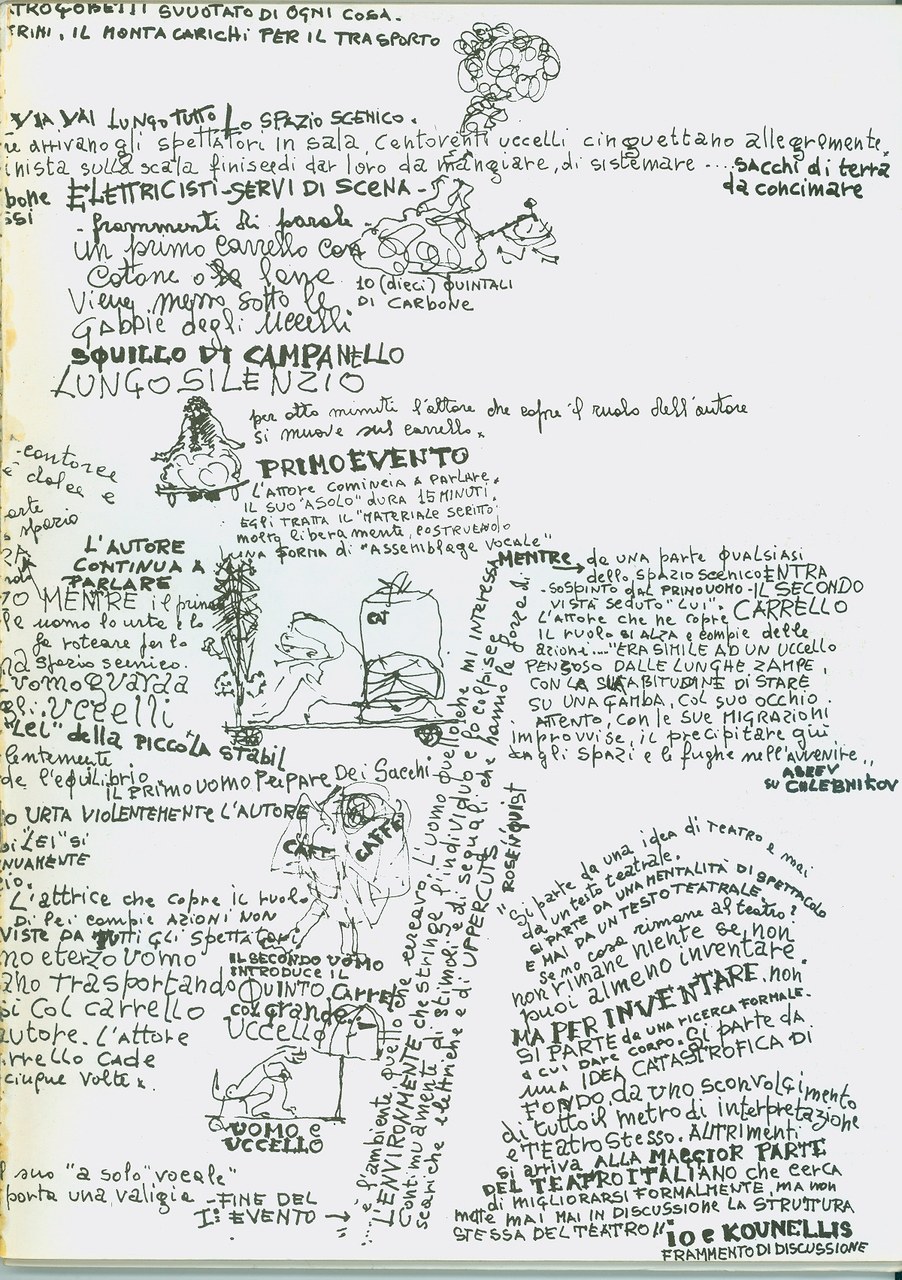 SVUOTATO DI OGNI COSA.
IL MONTACARICHI PER IL TRASPORTO
VIA VAI LUNGO TUTTO LO SPAZIO SCENICO.
arrivano gli spettatori in sala, centoventi uccelli cinguettano allegramente.
sulla scala finisce di dar loro da mangiare, di sistemare .... sacchi di terra
da concimare
ELETTRICISTI - SERVI DI SCENA -
- frammenti di parole -
un primo carrello con
cotone o lana
viene messo sotto le
gabbie degli uccelli
10 (dieci) QUINTALI
DI CARBONE
SQUILLO DI CAMPANELLO
LUNGO SILENZIO
per otto minuti l'attore che copre il ruolo dell'autore
si muove sul carrello.
PRIMO EVENTO
L'ATTORE COMINCIA A PARLARE.
IL SUO "A SOLO" DURA 15 MINUTI.
EGLI TRATTA IL "MATERIALE SCRITTO"
molto liberamente, COSTRUENDO
UNA FORMA di "ASSEMBLAGE VOCALE"
contorce
dolce e
spazio
L'AUTORE
CONTINUA A
PARLARE
MENTRE il primo
uomo lo urta e lo
fa roteare per lo
spazio scenico.
L'uomo guarda
gli uccelli
"Lei" della PICCOLA STABIL
lentemente
de l'equilibrio
IL PRIMO UOMO PREPARE Dei Sacchi
URTA VIOLENTEMENTE L'AUTORE
"LEI" SI
L'attrice che copre il ruolo
Di lei compie AZIONI NON
VISTE DA TUTTI GLI SPETTATORI
e terzo uomo
Trasportando
col carrello
autore. L'attore
cade
cinque volte.
CAFFÈ
IL SECONDO UOMO
INTRODUCE IL
QUINTO Carrello
col grande
Uccello
UOMO e
UCCELLO
suo "a solo" vocale"
porta una valigia - FINE DEL
I° EVENTO →
MENTRE → da UNA PARTE QUALSIASI
dello SPAZIO SCENICO ENTRA
- SOSPINTO dal PRIMO UOMO - IL SECONDO
CARRELLO
VISTA SEDUTO "LUI".
L'attore che ne copre
IL RUOLO SI ALZA e compie delle
azioni.... "ERA SIMILE AD UN UCCELLO
PENSOSO DALLE LUNGHE ZAMPE,
CON LA SUA ABITUDINE DI STARE
SU UNA GAMBA, COL SUO OCCHIO
ATTENTO, con le SUE MIGRAZIONI
improvvise, il precipitare qui
negli spazi e le fughe nell'avvenire,,
ASEEV
SU CHLEBNIKOV
quello che cercavo. L'uomo quello che mi interessa
L'ENVIRONMENTE che stringe l'individuo e lo colpisce
Continuamente di stimoli e di segnali che hanno la forza di
scariche elettriche e di UPPERCUTS
"ROSENQUIST
Si parte da una idea di TEATRO e mai
da un testo teatrale.
SI PARTE DA UNA MENTALITÀ DI SPETTACOLO
E MAI DA UN TESTO TEATRALE,
Se no cosa rimane al teatro?
non rimane niente se non
puoi almeno inventare.
MA PER INVENTARE, non
SI PARTE da UNA RICERCA FORMALE.
a cui DARE CORPO. Si parte da
una IDEA CATASTROFICA DI
FONDO, da uno sconvolgimento
di tutto il metro di interpretazione
e TEATRO STESSO. ALTRIMENTI
si arriva ALLA MAGGIOR PARTE
DEL TEATRO ITALIANO che cerca
di MIGLIORARSI FORMALMENTE, ma non
mette mai MAI IN DISCUSSIONE LA STRUTTURA
STESSA DEL TEATRO"
io e KOUNELLIS
FRAMMENTO DI DISCUSSIONE